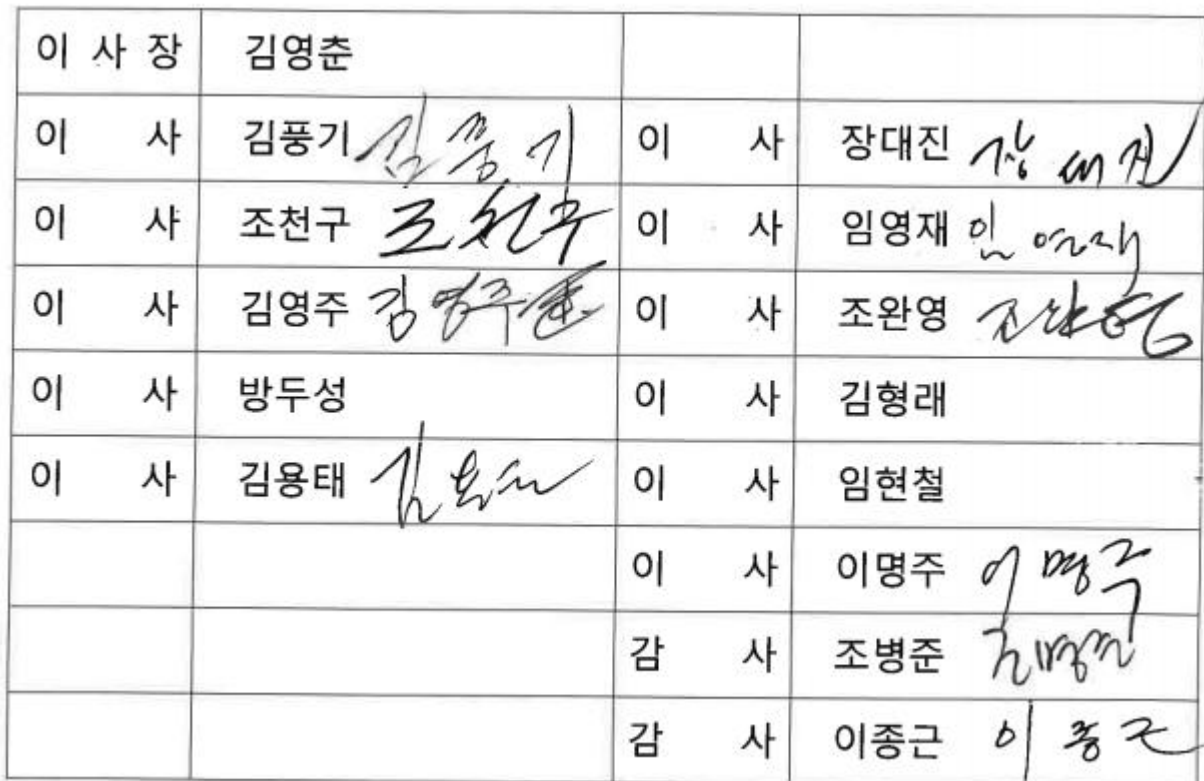 이 사 장 김영춘
이 사 김풍기 김풍기 이 사 장대진 장대진
이 사 조천구 조천구 이 사 임영재 임영재
이 사 김영주 김영주 이 사 조완영 조완영
이 사 방두성 이 사 김형래
이 사 김용태 이 사 임현철
이 사 이명주 이명주
감 사 조병준 조병준
감 사 이종근 이종근